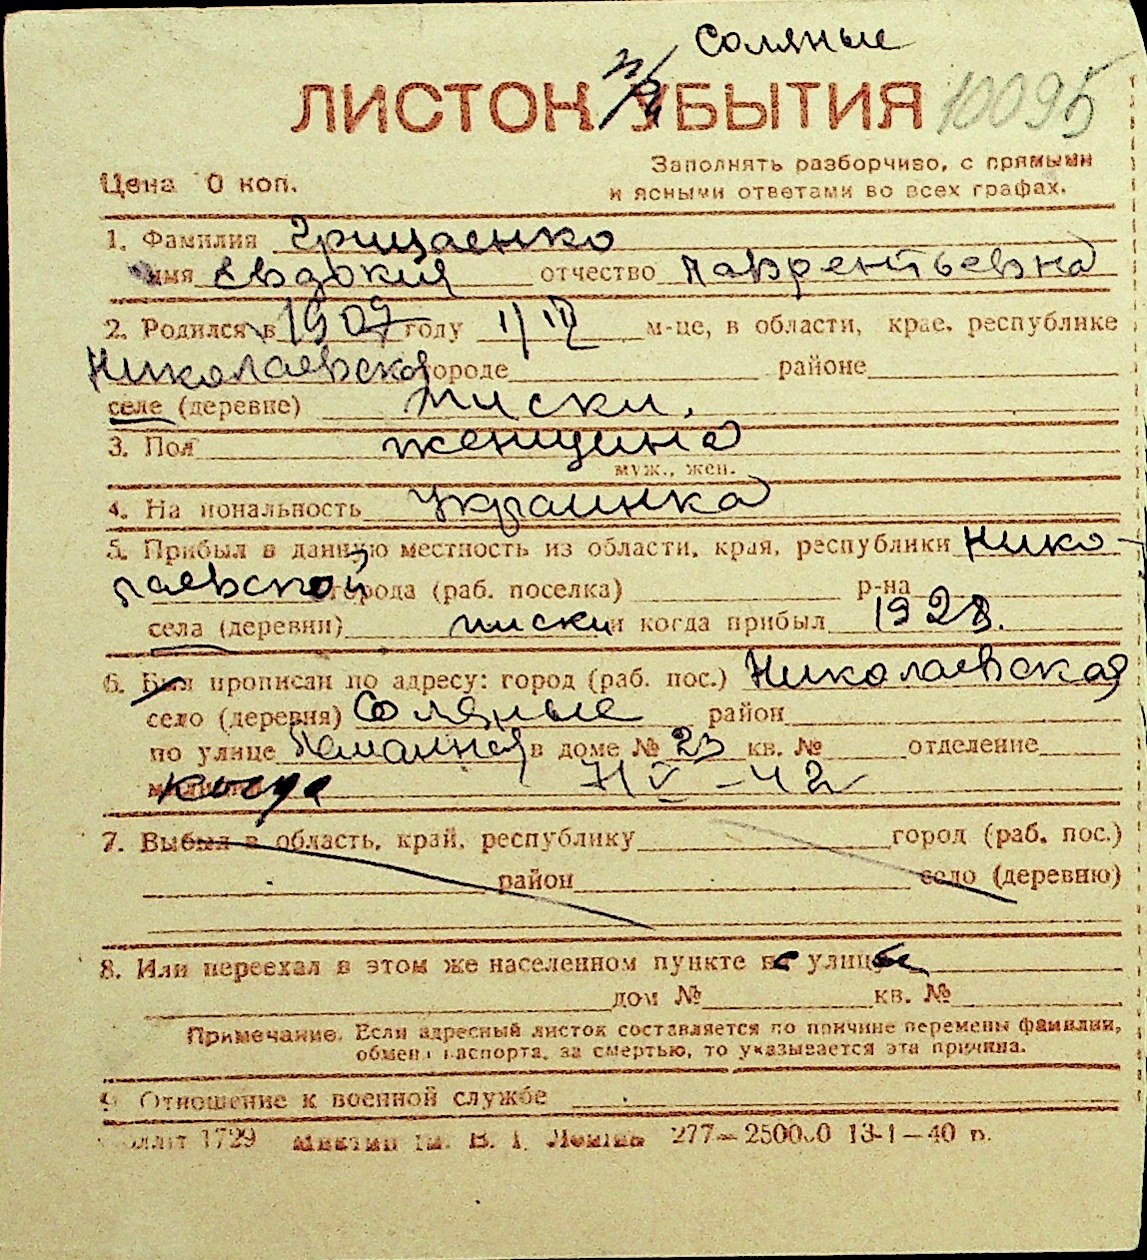 Соляные
ЛИСТОК УБЫТИЯ 10095
Цена 0 коп.
Заполнять разборчиво, с прямыми
и ясными ответами во всех графах.
1. Фамилия Грищаенко
имя Евдокия отчество Лаврентьевна
2. Родился в 1907 году 1/IV м-це, в области, крае, республике
Николаевская городе районе
селе (деревне) Писки.
3. Пол женщина
муж., жен.
4. Национальность украинка
5. Прибыл в данную местность из области, края, республики Нико-
лаевской города (раб. поселка) р-на
села (деревни) Писки и когда прибыл 1928.
6. Был прописан по адресу: город (раб. пос.) Николаевская
село (деревня) Соляные район
по улице в доме № 23 кв. № отделение
когда 7/V-42
7. Выбыл в область, край, республику город (раб. пос.)
район село (деревню)
8. Или переехал в этом же населенном пункте с улицы
дом № кв. №
Примечание. Если адресный листок составляется по причине перемены фамилии,
обмена паспорта, за смертью, то указывается эта причина.
9. Отношение к военной службе
1729 277—250000 13-1—40 р.